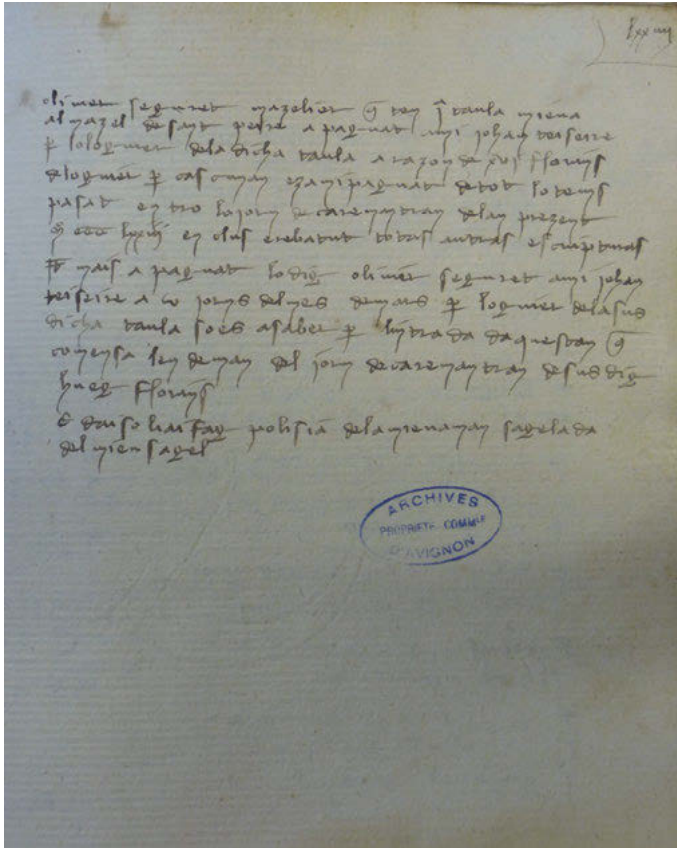 lxxiiii
olivier seguret mazelier q̄ ten ī taula miena
al mazel de sant peire a paguat a mi johan teiseire
p̄ lo loguier de la dicha taula a razon de xvi floriis
de loguier p̄ cascun an e za mi paguat de tot lo tems
pasat en tro lo jorn de caremantran de lan prezent
m̄ ccc lxxiii en clus e rebatut totas autras escripturas
It̄ mais a paguat lo dig olivier seguret a mi johan
teiseire a jorns del mes de mars p̄ loguier de la sus
dicha taula so es a saber p̄ lintrada daquest an q̄
comensa len deman del jorn de caremantran desus dig
hueg floriis
E daiso liai fag polisia de la miena man sagelada
del mien sagel
ARCHIVES
PROPRIETE COMMLE
D'AVIGNON